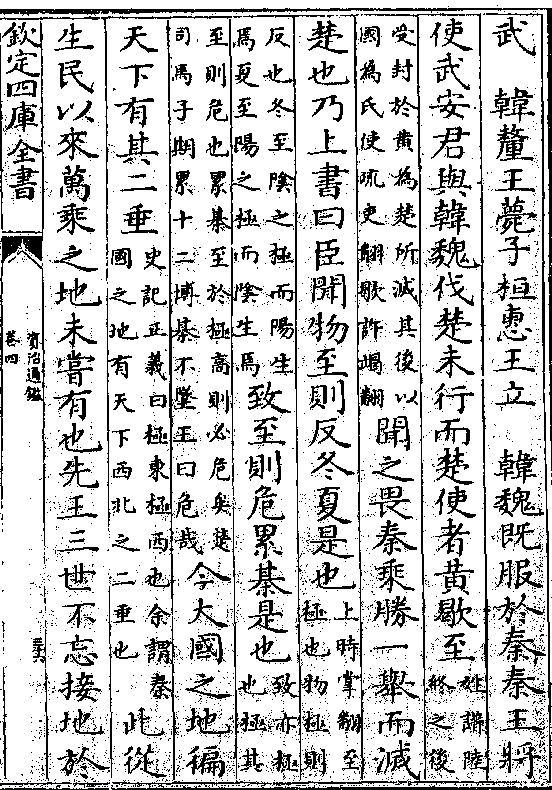 武　韓釐王薨子桓惠王立　韓魏既服於秦秦王將
使武安君與韓魏伐楚未行而楚使者黃歇至
姓譜陸
終之後
受封於黃為楚所滅其後以
國為氏使疏吏翻歇許竭翻
聞之畏秦乘勝一舉而滅
楚也乃上書曰臣聞物至則反冬夏是也
上時掌翻至
極也物極則
反也冬至陰之極而陽生
焉夏至陽之極而陰生焉
致至則危累棊是也
致亦極
也極其
至則危也累棊至於極高則必危矣楚
司馬子期累十二博棊不墜王曰危哉
今大國之地徧
天下有其二垂
史記正義曰極東極西也余謂秦
國之地有天下西北之二垂也
此從
生民以來萬乘之地未嘗有也先王三世不忘接地於
欽定四庫全書
資治通鑑
卷四